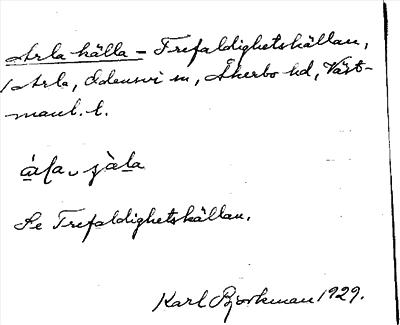 Arla källa – Trefaldighetskällan,
Arla, Odensvi sn, Åkerbo hd, Väst-
manl. l.
Se Trefaldighetskällan.
Karl Björkman 1929.